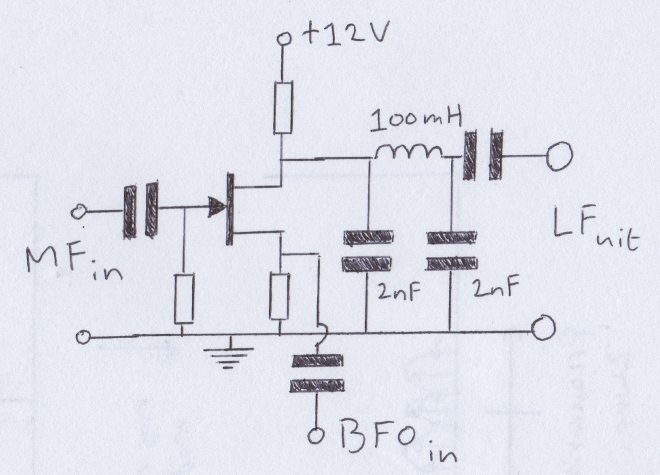 +12V
100mH
MFin
LFuit
2nF 2nF
BFOin